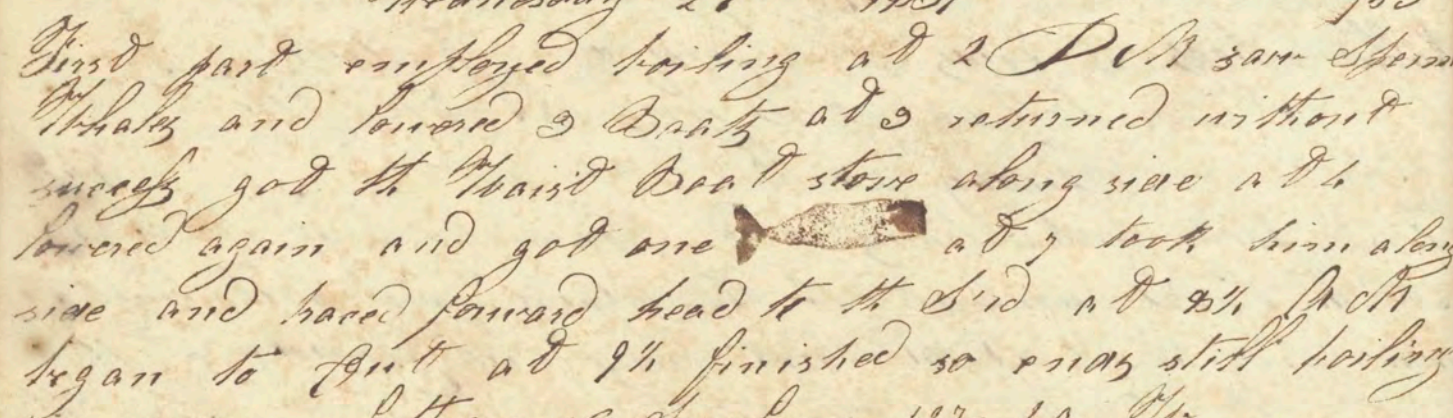 Wednesday
First part employed boiling at 2 PM saw Sperm
Whales and lowered 3 Boats at 3 returned without
success got th Waist Boat stove along side at 4
lowered again and got one at 7 took him along
side and haced forward head to th S'rd at 8½ AM
began to Cut at 9½ finished so ends still boiling